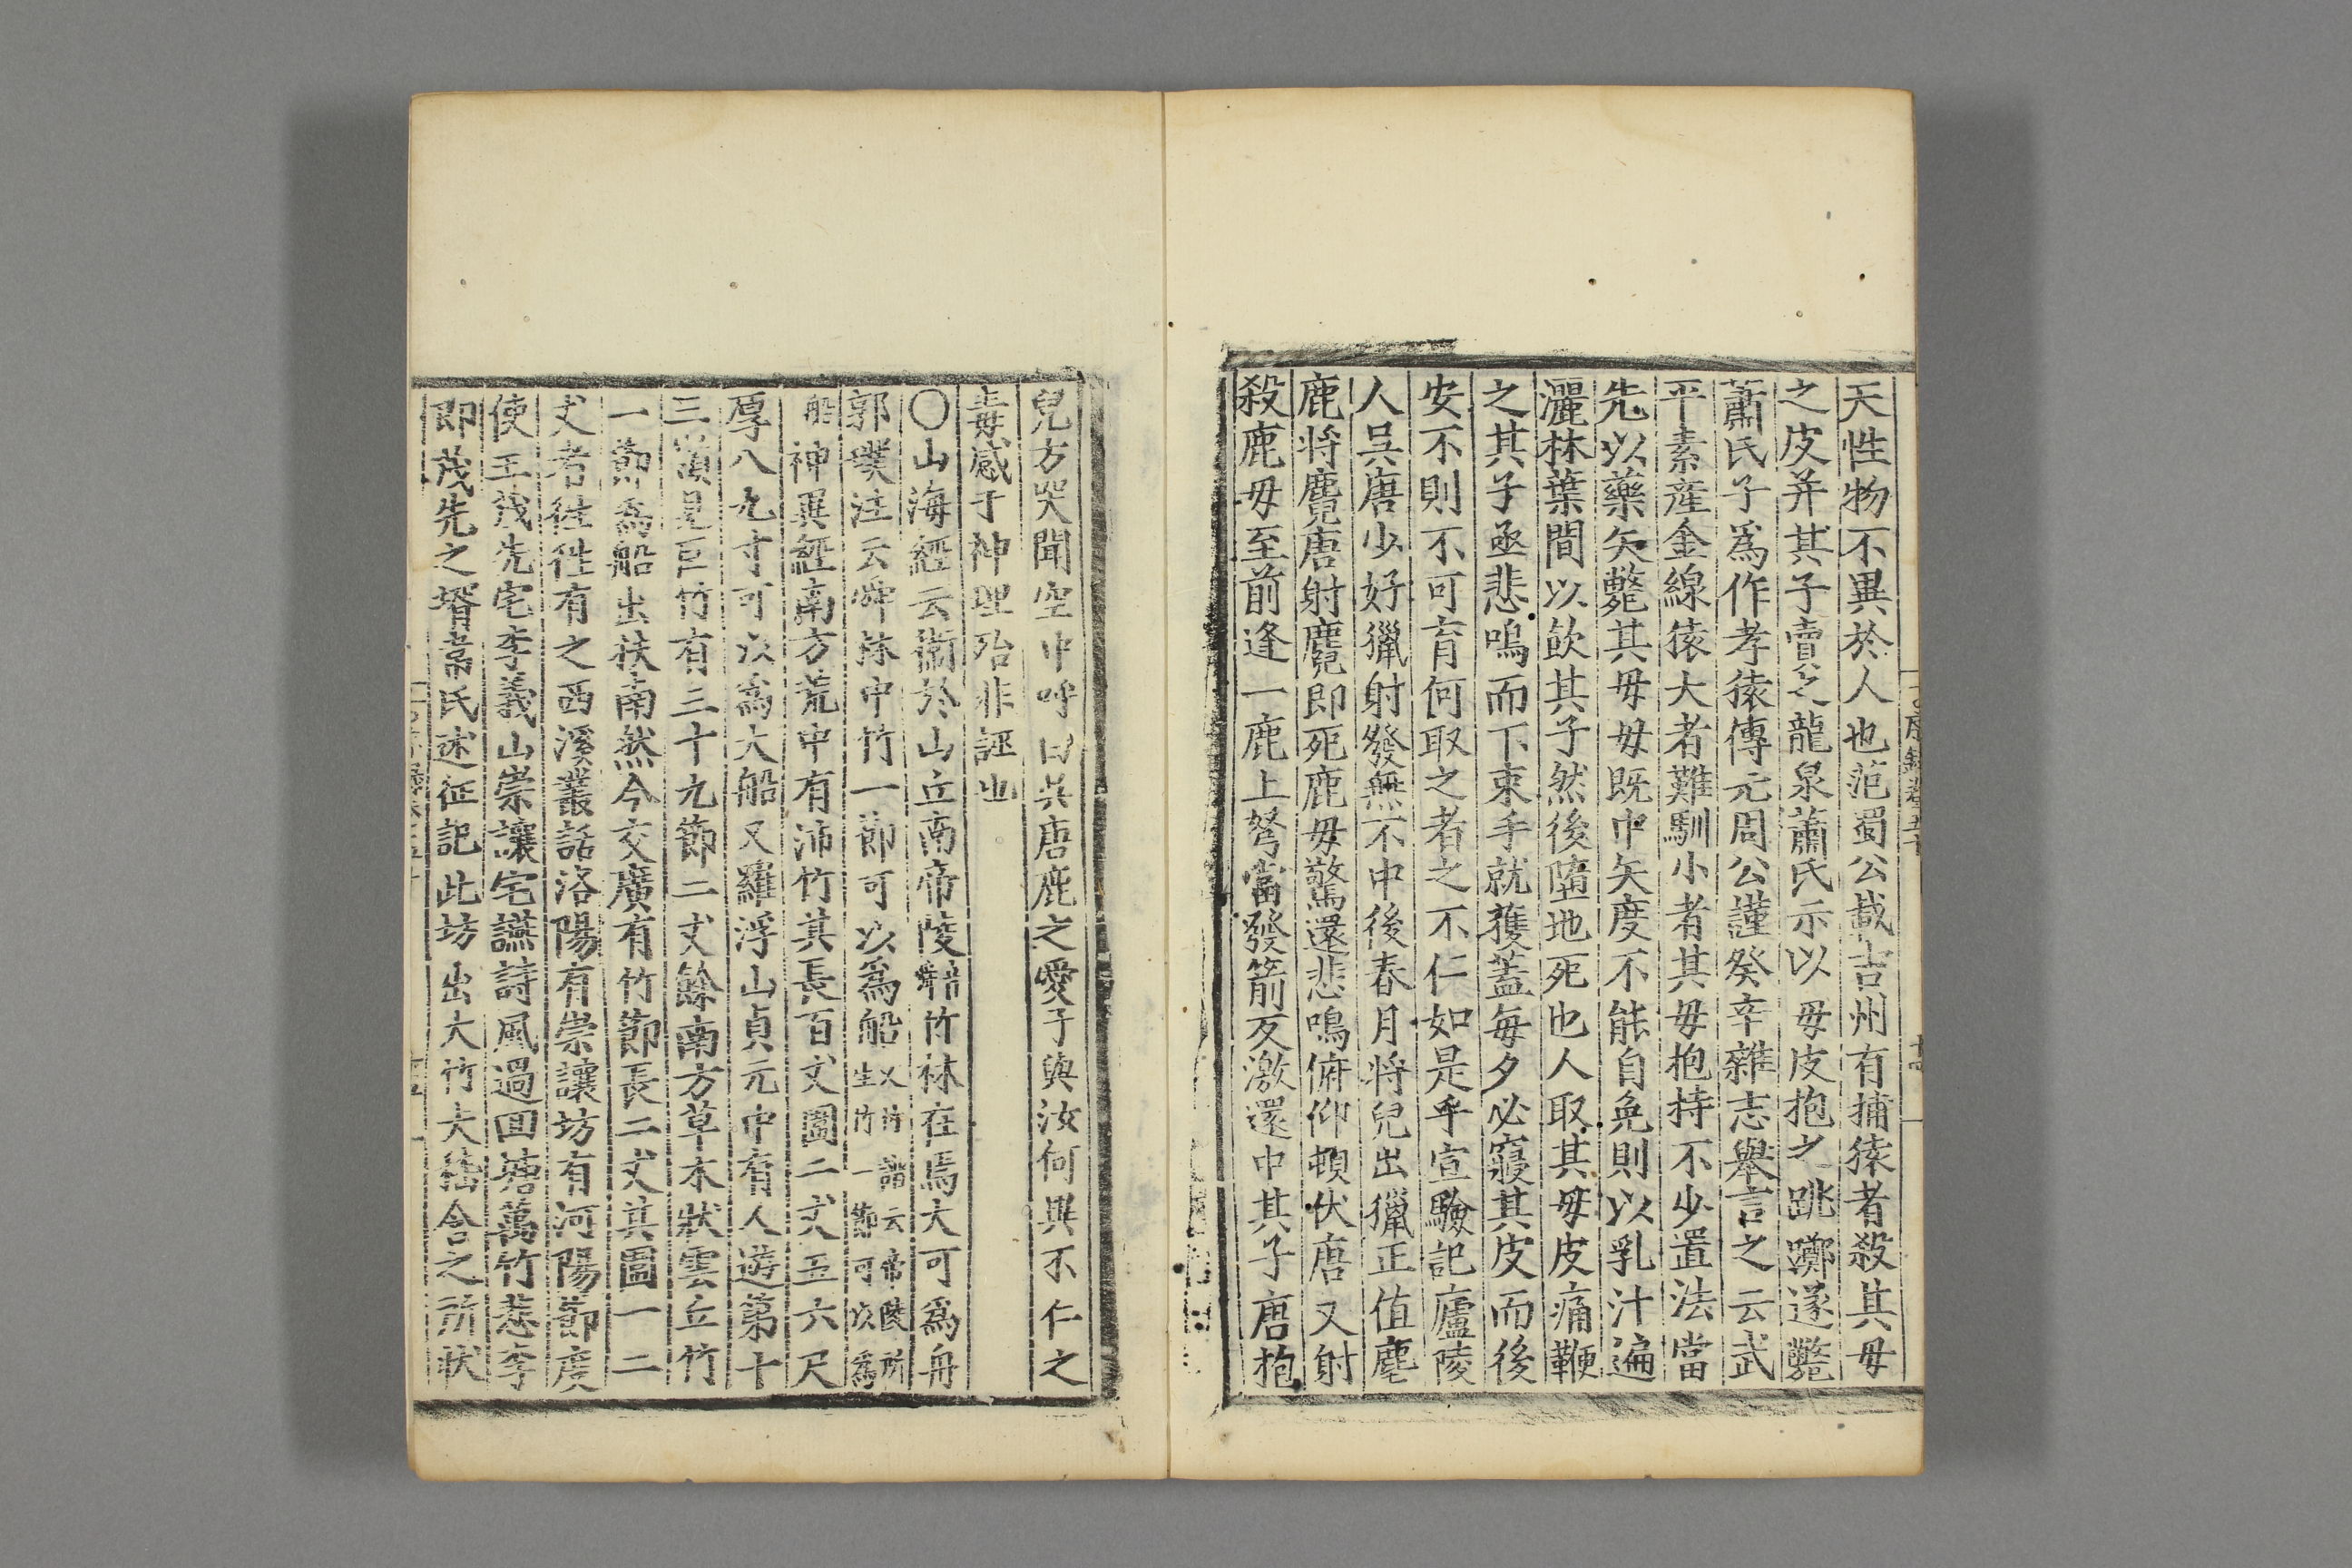 天性物不異於人也范蜀公載吉州有捕猿者殺其毋
之皮并其子賣之龍泉蕭氏示以毋皮抱之跳躑遂斃
蕭氏子爲作孝猿傳元周公謹癸辛雜志舉言之云武
平素産金線猿大者難馴小者其毋抱持不少置法當
先以藥矢斃其毋毋既中矢度不能自免則以乳汁遍
灑林葉間以飲其子然後墮地死也人取其毋皮痛鞭
之其子亟悲鳴而下束手就獲蓋每夕必寢其皮而後
安不則不可育何取之者之不仁如是乎宣驗記廬陵
人吳唐少好獵射發無不中後春月將兒出獵正值麀
鹿將麑唐射麑即死鹿毋驚還悲鳴俯仰頓伏唐又射
殺鹿毋至前逢一鹿上弩當發箭反激還中其子唐抱
兒方哭聞空中呼曰吳唐鹿之愛子與汝何異不仁之
毒感于神理殆非誣也
〇山海經云衞於山丘南帝陵竹林在焉大可爲舟
郭璞注云舜林中竹一節可以爲船又竹譜云帝陵所生竹一節可以爲
船神異經南方荒中有沛竹其長百丈圍二丈五六尺
厚八九寸可以爲大船又羅浮山貞元中有人遊第十
三嶺見巨竹有三十九節二丈餘南方草木狀雲丘竹
一節爲船出扶南然今交廣有竹節長二丈其圍一二
丈者往往有之西溪叢話洛陽有崇讓坊有河陽節度
使王茂先宅李義山崇讓宅讌詩風過回塘萬竹悲李
即茂先之壻韋氏述征記此坊出大竹夫徭含之所狀